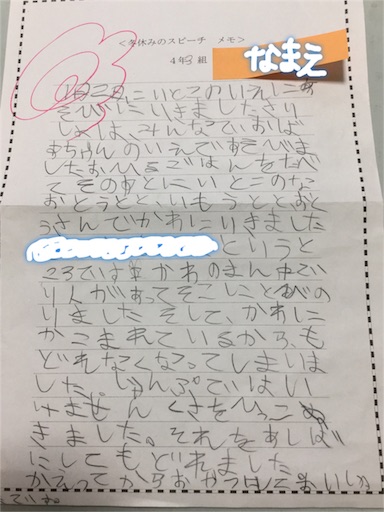 <冬休みのスピーチ メモ>
4年3組
なまえ
1月2日にいとこのいえにあ
そびにいきましたさい
しょは、みんなでおば
あちゃんのいえであそびま
したおひるごはんをたべ
てそのあとにいとこのな
おとうとと、いもうとと、おと
うさんでかわにいきました
というと
ころですかわのまん中で
り人があってそこにとびの
りましたそして、かわに
かこまれているから、も
どれなくなってしまいま
した。じゃんぷではい
けませんくさをひっこぬ
きました。それをあしば
にしてもどれました
かえってからおやつ